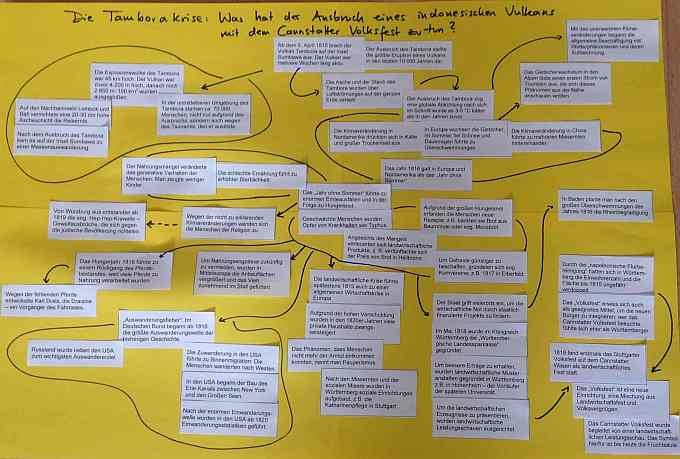 Die Tamborakrise: Was hat der Ausbruch eines indonesischen Vulkans
mit dem Cannstatter Volksfest zu tun?
Ab dem 5. April 1815 brach der
Vulkan Tambora auf der Insel
Sumbawa aus. Der Vulkan war
mehrere Wochen lang aktiv.
Der Ausbruch des Tambora stellte
die größte Eruption eines Vulkans
in den letzten 10 000 Jahren dar.
Mit den unerwarteten Klima-
veränderungen begann die
allgemeine Beschäftigung mit
Wetterphänomenen und deren
Aufzeichnung.
Die Explosionswolke des Tambora
war 45 km hoch. Der Vulkan war
zuvor 4 200 m hoch, danach noch
Auf den Nachbarinseln Lombok und
Bali vernichtete eine 20-30 cm hohe
Ascheschicht die Reisernte.
Nach dem Ausbruch des Tambora
kam es auf der Insel Sumbawa zu
einer Massenauswanderung.
In der unmittelbaren Umgebung des
Tambora starben ca. 70 000
Menschen, nicht nur aufgrund des
Ausbruchs, sondern auch wegen
des Tsunamis, den er auslöste.
Die Asche und der Staub des
Tambora wurden über
Luftströmungen auf der ganzen
Erde verteilt.
Der Ausbruch des Tambora zog
eine globale Abkühlung nach sich.
Im Schnitt wurde es 3-5 °C kälter
als in den Jahren zuvor.
Das Gletscherwachstum in den
Alpen löste einen ersten Strom von
Touristen aus, die sich dieses
Phänomen aus der Nähe
anschauen wollten.
Die Klimaveränderung in
Nordamerika drückten sich in Kälte
und großer Trockenheit aus.
In Europa wuchsen die Gletscher,
im Sommer fiel Schnee und
Dauerregen führte zu
Überschwemmungen.
Die Klimaveränderung in China
führte zu mehreren Missernten
hintereinander.
Das Jahr 1816 galt in Europa und
Nordamerika als das „Jahr ohne
Sommer“.
Der Nahrungsmangel veränderte
das generative Verhalten der
Menschen: Man zeugte weniger
Kinder.
Die schlechte Ernährung führt zu
erhöhter Sterblichkeit.
Das „Jahr ohne Sommer“ führte zu
enormen Ernteausfällen und in der
Folge zu Hungersnot.
Geschwächte Menschen wurden
Opfer von Krankheiten wie Typhus.
Von Würzburg aus entstanden ab
1819 die sog. Hep-Hep-Krawalle –
Gewaltausbrüche, die sich gegen
die jüdische Bevölkerung richteten.
Wegen der nicht zu erklärenden
Klimaveränderungen wandten sich
die Menschen der Religion zu.
Aufgrund der großen Hungersnot
erfanden die Menschen neue
Rezepte, z.B. backten sie Brot aus
Baumrinde oder sog. Moosbrot.
In Baden plante man nach den
großen Überschwemmungen des
Jahres 1816 die Rheinbegradigung.
Angesichts des Mangels
verteuerten sich landwirtschaftliche
Produkte, z. B. verfünffachte sich
der Preis von Brot in Heilbronn.
Das Hungerjahr 1816 führte zu
einem Rückgang des Pferde-
bestandes, weil viele Pferde zu
Nahrung verarbeitet wurden
Um Nahrungsengpässe zukünftig
zu vermeiden, wurden in
Mitteleuropa die Anbauflächen
vergrößert und das Vieh
zunehmend im Stall gefüttert.
Um Getreide günstiger zu
beschaffen, gründeten sich sog.
Kornvereine, z.B. 1817 in Elberfeld.
Wegen der fehlenden Pferde
entwickelte Karl Drais, die Draisine
– ein Vorgänger des Fahrrades.
Die landwirtschaftliche Krise führte
spätestens 1816 auch zu einer
allgemeinen Wirtschaftskrise in
Europa.
Aufgrund der hohen Verschuldung
wurden in den 1820er Jahren viele
private Haushalte zwangs-
versteigert.
Das Phänomen, dass Menschen
nicht mehr der Armut entkommen
konnten, nennt man Pauperismus.
Nach den Missernten und der
sozialen Misere wurden in
Württemberg soziale Einrichtungen
aufgebaut, z.B. die
Katharinenpflege in Stuttgart.
„Auswanderungsfieber“: Im
Deutschen Bund begann ab 1816
die größte Auswanderungswelle der
bisherigen Geschichte.
Russland wurde neben den USA
zum wichtigsten Auswandererziel.
Die Zuwanderung in den USA
führte zu Binnenmigration: Die
Menschen wanderten nach Westen.
In den USA begann der Bau des
Erie-Kanales zwischen New York
und den Großen Seen.
Nach der enormen Einwanderungs-
welle wurden in den USA ab 1820
Einwanderungsstatistiken geführt.
Der Staat griff vielerorts ein, um die
wirtschaftliche Not durch staatlich
finanzierte Projekte zu lindern.
Im Mai 1818 wurde im Königreich
Württemberg die „Württember-
gische Landessparkasse“
gegründet.
Um bessere Erträge zu erhalten,
wurden landwirtschaftliche Muster-
anstalten gegründet in Württemberg
z.B. in Hohenheim – der Vorläufer
der späteren Universität.
Um die landwirtschaftlichen
Erzeugnisse zu präsentieren,
wurden landwirtschaftliche
Leistungsschauen ausgerichtet.
Durch die „napoleonische Flurbe-
reinigung“ hatten sich in Württem-
berg die Einwohnerzahl und die
Fläche bis 1815 ungefähr
verdoppelt.
Das „Volksfest“ erwies sich auch
als geeignetes Mittel, um die neuen
Bürger zu integrieren: wer das
Cannstatter Volksfest besuchte,
fühlte sich eher als Württemberger.
1818 fand erstmals das Stuttgarter
Volksfest auf dem Cannstatter
Wasen als landwirtschaftliches
Fest statt.
Das „Volksfest“ ist eine neue
Einrichtung, eine Mischung aus
Landwirtschaftsfest und
Volksvergnügen.
Das Cannstatter Volksfest wurde
begleitet von einer landwirtschaft-
lichen Leistungsschau. Das Symbol
hierfür ist bis heute die Fruchtsäule.